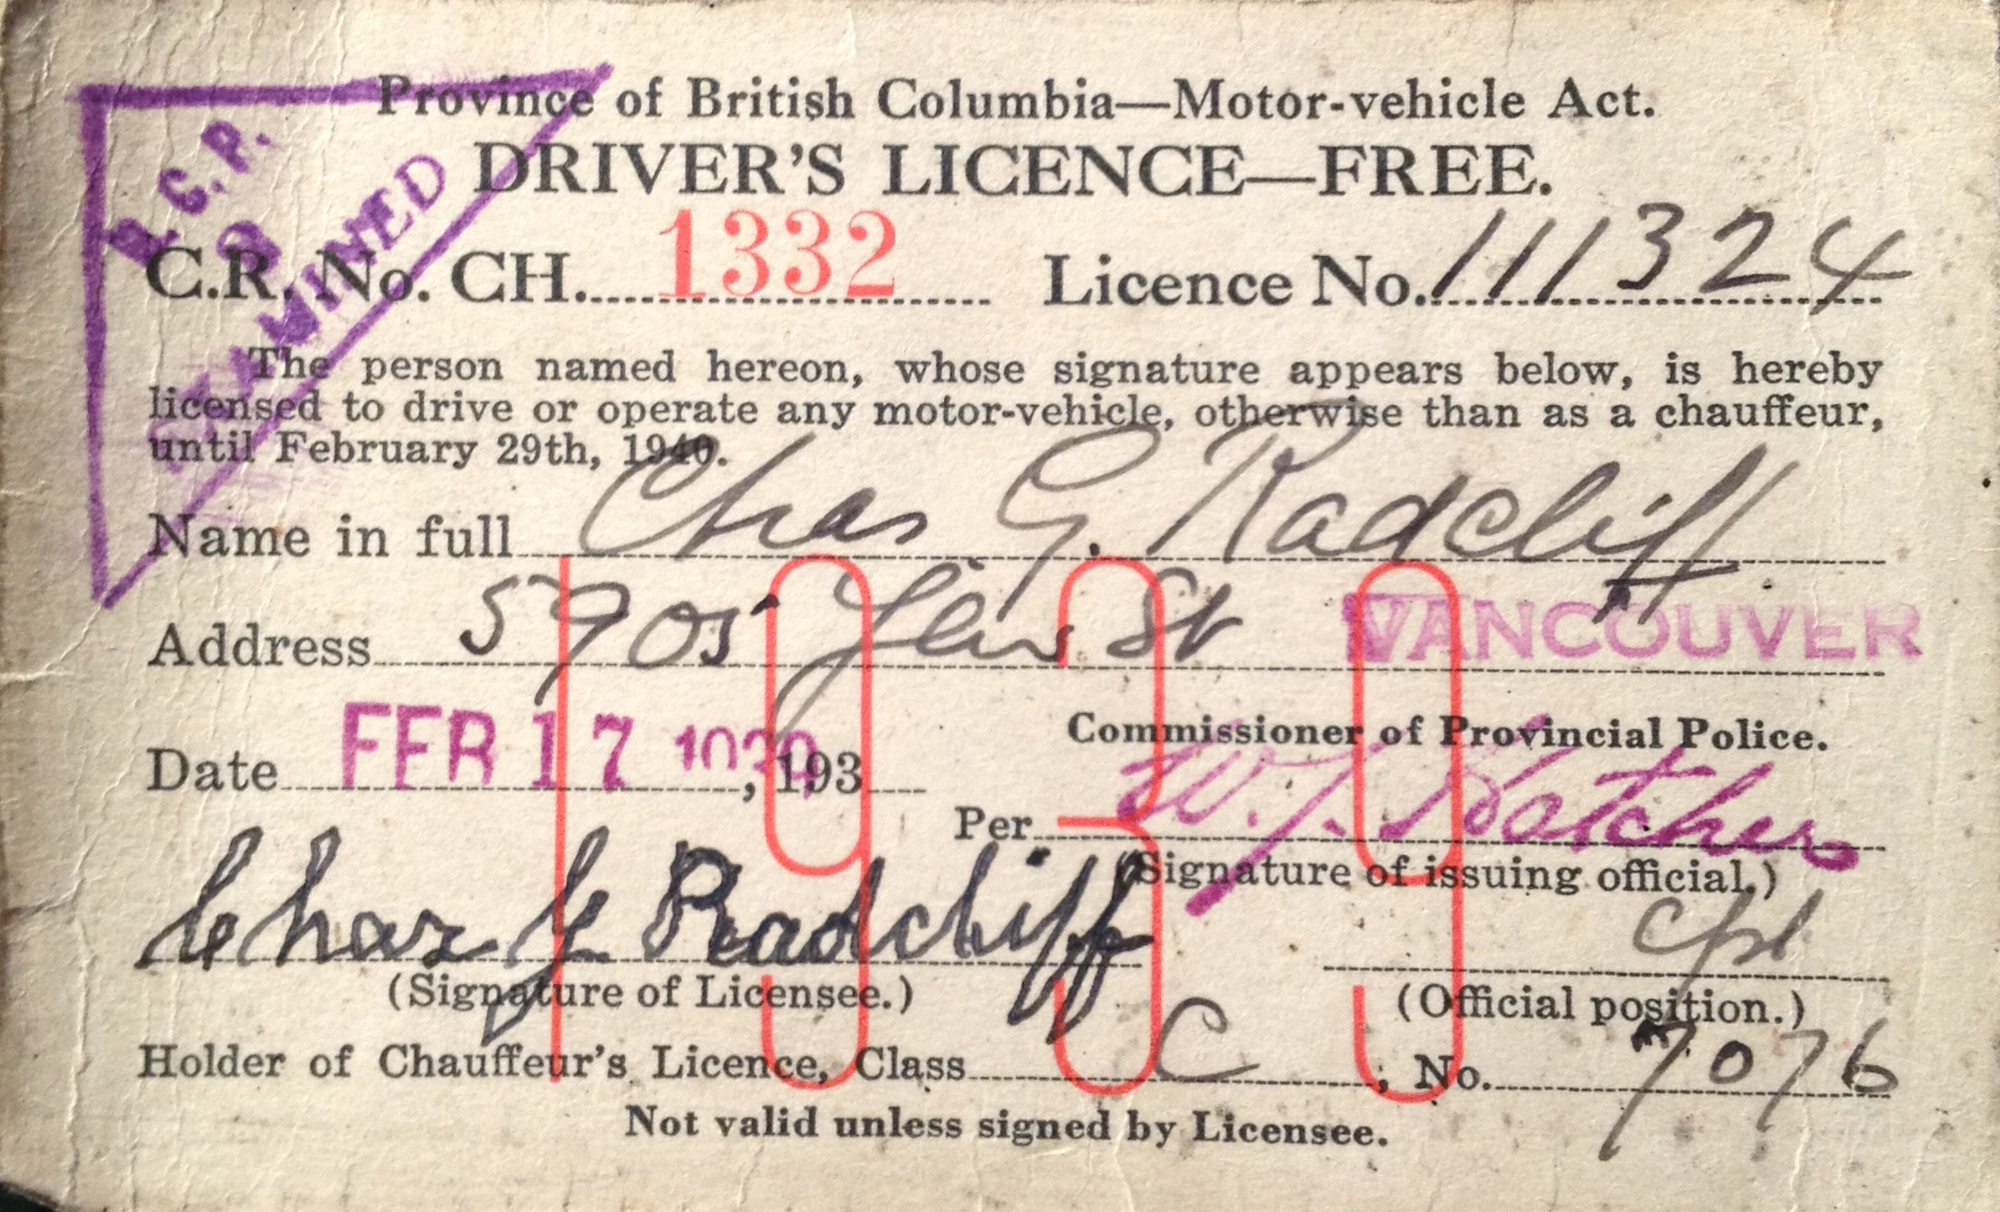 Province of British Columbia—Motor-vehicle Act.
DRIVER'S LICENCE—FREE.
B.C.P. EXAMINED
C.R. No. CH. 1332 Licence No. 111324
The person named hereon, whose signature appears below, is hereby
licensed to drive or operate any motor-vehicle, otherwise than as a chauffeur,
until February 29th, 1940.
Name in full Chas G. Radcliff
Address 5905 St VANCOUVER
1939
Date FEB 17 1939, 193
Commissioner of Provincial Police.
Per
(Signature of issuing official.)
Chas G Radcliff Cpl
(Signature of Licensee.) (Official position.)
Holder of Chauffeur's Licence, Class C, No. 7076
Not valid unless signed by Licensee.